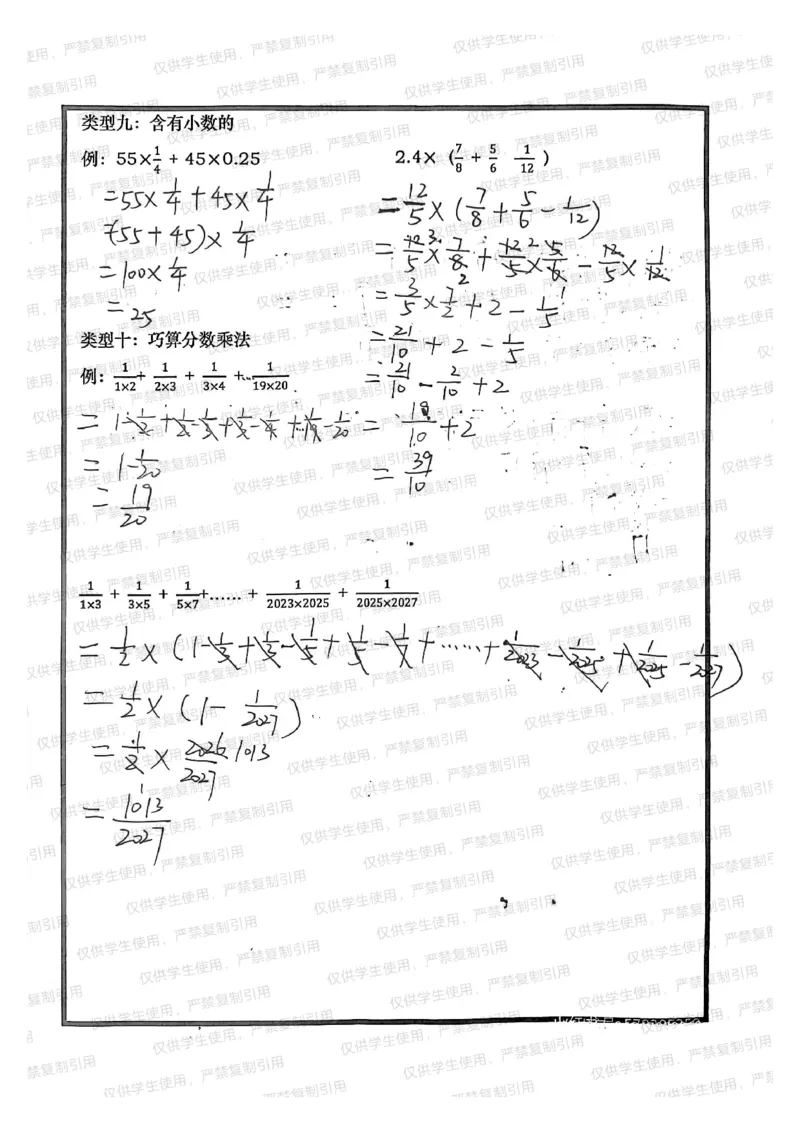 类型九：含有小数的
例：55×1/4 + 45×0.25
=55×1/4+45×1/4
=(55+45)×1/4
=100×1/4
=25
2.4×（7/8 + 5/6 - 1/12）
=12/5×(7/8+5/6-1/12)
=12/5×7/8+12/5×5/6-12/5×1/12
=3/5×7/2+2-1/5
=21/10+2-1/5
=21/10-2/10+2
=19/10+2
=39/10
类型十：巧算分数乘法
例：1/1×2+ 1/2×3 + 1/3×4 +...1/19×20
=1-1/2+1/2-1/3+1/3-1/4+...1/19-1/20
=1-1/20
=19/20
1/1×3 + 1/3×5 + 1/5×7+……+ 1/2023×2025 + 1/2025×2027
=1/2×(1-1/3+1/3-1/5+1/5-1/7+……+1/2023-1/2025+1/2025-1/2027)
=1/2×(1-1/2027)
=1/2×2026/2027 1013
=1013/2027
仅供学生使用，严禁复制引用